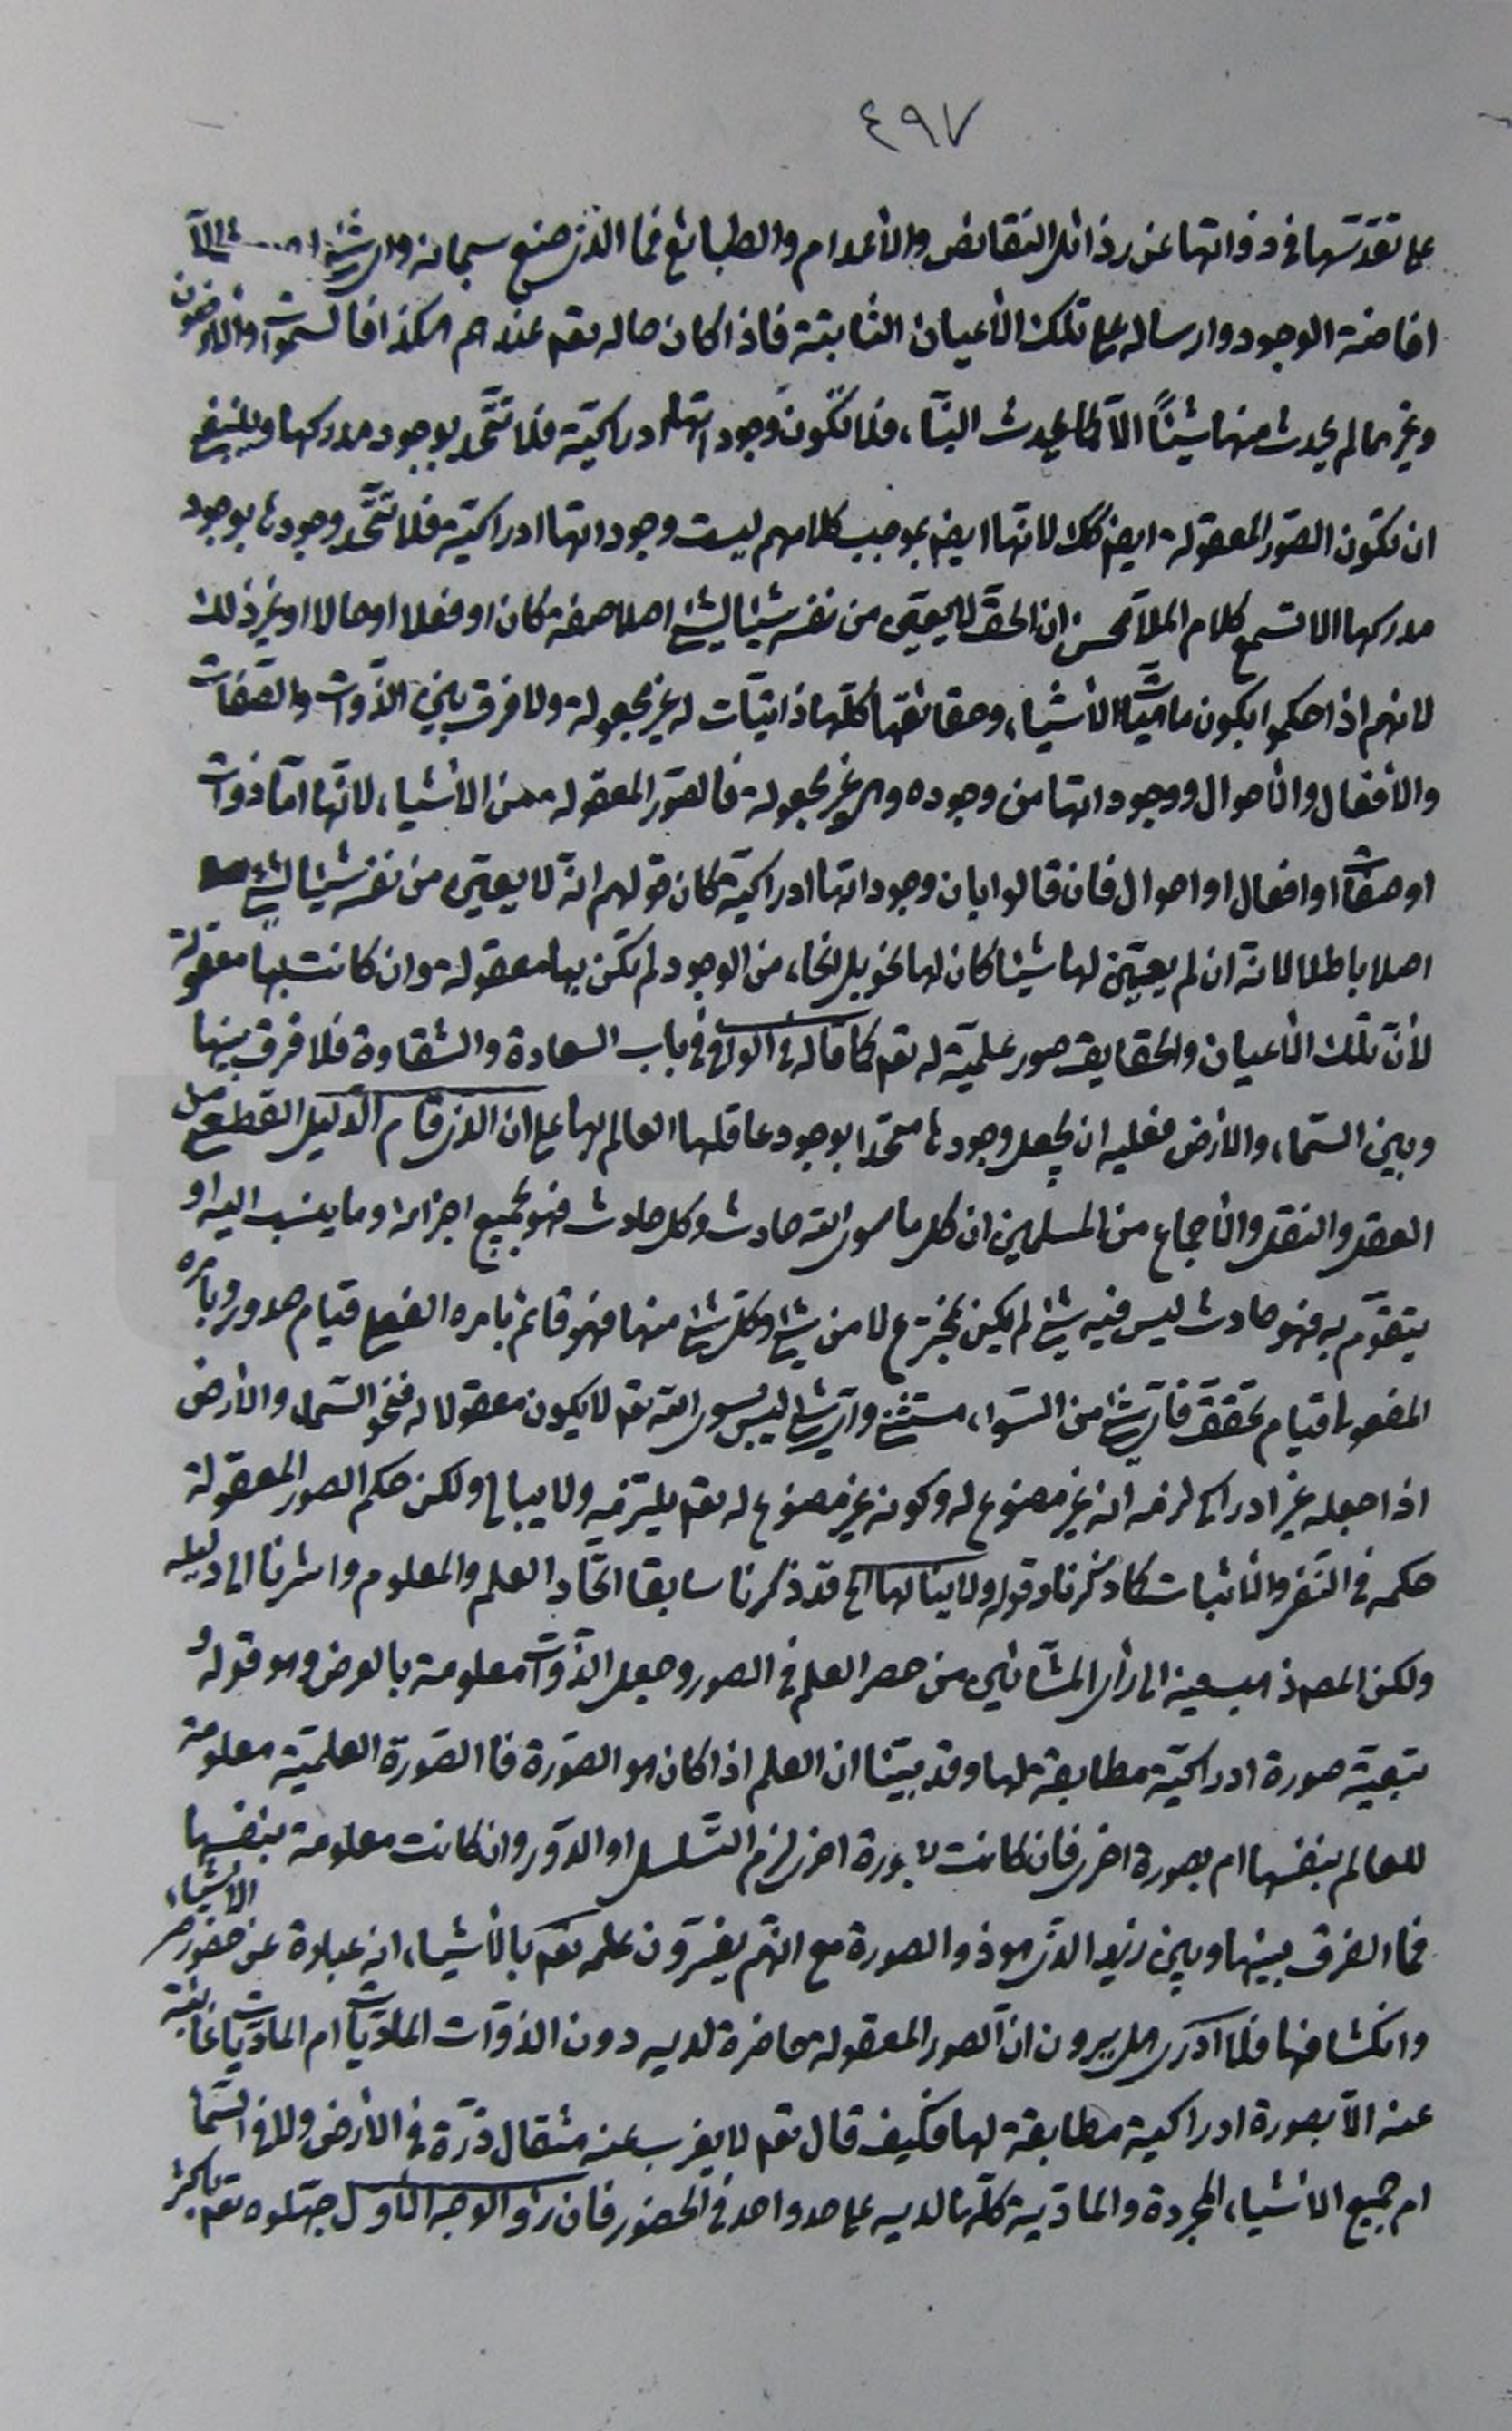 ٤٩٧
على تقدّسها فى ذواتها عن رذائل النقائص والأعدام والطبائع فما الذى صنع سبحانه واى شئ الّا
افاضة الوجود وارساله على تلك الأعيان الثابتة فاذا كان حاله تعم عندهم هكذا فالسموات والارضون
وغيرهما لم يحدث منها شيئًا الّا كما يحدث البنّاء، فلا تكون وجوداتها ادراكية فلا تتّحد بوجود مدركها وينبغى
ان تكون الصّور المعقولة ايضا كك لانّها ايضا بموجب كلامهم ليست وجوداتها ادراكيّة فلا تتّحد وجودها بوجود
مدركها الا تسمع كلام الملّا محسن ان الحق لا يعيّن من نفسه شيئا لشئ اصلا صفة كان او فعلا او حالا او غير ذلك
لانهم اذا حكموا بكون ماهيّات الأشياء، وحقائقها كلّها ذاتيّات له غير مجعولة ولا فرق بين الذّوات والصّفات
والأفعال والأحوال ووجوداتها من وجوده وهى غير مجعولة فالصّور المعقولة من الأشياء، لانّها امّا ذوات
او صفات او افعال او احوال فان قالوا بان وجوداتها ادراكيّة كان قولهم انّه لا يعيّن من نفسه شيئا لشئ
اصلا باطلا لانّه ان لم يعيّن لها شيئا كان لها بخويل انحاء، من الوجود لم تكن بها معقولة وان كانت بها معقولة
لأنّ تلك الأعيان والحقايق صور علميّة له تعم كما قاله فى الوافى فى باب السعادة والشقاوة فلا فرق بينها
وبين السّماء، والأرض فعليه ان يجعل وجودها متحدا بوجود عاقلها العالم بها على ان الذى قام الدّليل القطعى من
العقل والنقل والأجماع من المسلمين ان كل ما سوى الله حادث وكل حادث فهو بجميع اجزائه وما ينسب اليه او
يتقوّم به فهو حادث ليس فيه شئ لم يكن مخترع لا من شئ وكل شئ منها فهو قائم بامره الفعلى قيام صدور وبامره
المفعولى قيام تحقق فاىّ شئ من السّواء، مستثنى واىّ شئ ليس سوى الله تعم لا يكون معقولا له فنحو السّماء والأرض
اذا جعله غير ادراكى لزمه انه غير مصنوع له وكونه غير مصنوع له تعم يلتزمه ولا يبالى ولكن حكم الصور المعقولة
حكمه فى النّفى والأثبات كما ذكرنا وقوله ولا ينالها الخ قد ذكرنا سابقا اتّحاد العلم والمعلوم واشرنا الى دليله
ولكن المص ذاهب فيه الى رأى المشّائين من حصر العلم فى الصور وجعل الذّوات معلومة بالعرض وهو قوله و
بتبعيّة صورة ادراكيّة مطابقة لها وقد بيّنا ان العلم اذا كان هو الصّورة فالصّورة العلميّة معلومة
للعالم بنفسها ام بصورة اخرى فان كانت بصورة اخرى لزم التّسلسل او الدّور وان كانت معلومة بنفسها
فما الفرق بينها وبين زيد الذى هو ذو الصورة مع انّهم يفسّرون علمه تعم بالأشياء، انه عبارة عن حضور الأشياء،
وانكشافها فلا ادرى هل يرون انّ الصور المعقولة حاضرة لديه دون الذوّات الماديّات ام الماديّات غائبة
عنه الّا بصورة ادراكية مطابقة لها فكيف قال تعم لا يغرب عنه مثقال ذرّة فى الأرض ولا فى السّماء
ام جميع الأشياء، المجردة والمادّية كلّها لديه على حد واحد فى الحضور فان رأوا الوجه الأول جهّلوه تعم